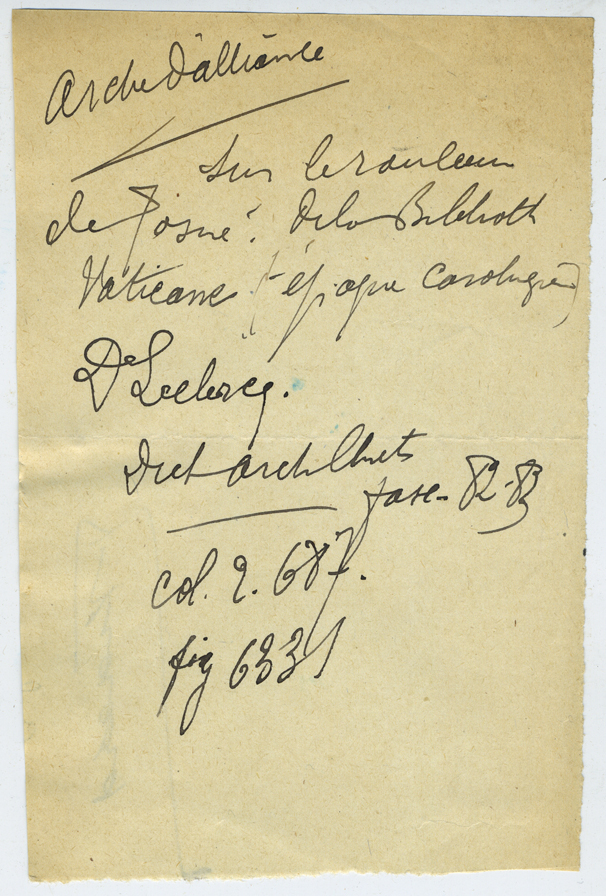 Arche d'alliance
Sur le rouleau
de Josué. de la Biblioth
Vaticane (époque carolingien)
D Leclercq.
Dict Arch Chret
fasc. 82-83
col. 2.687.
fig 6331